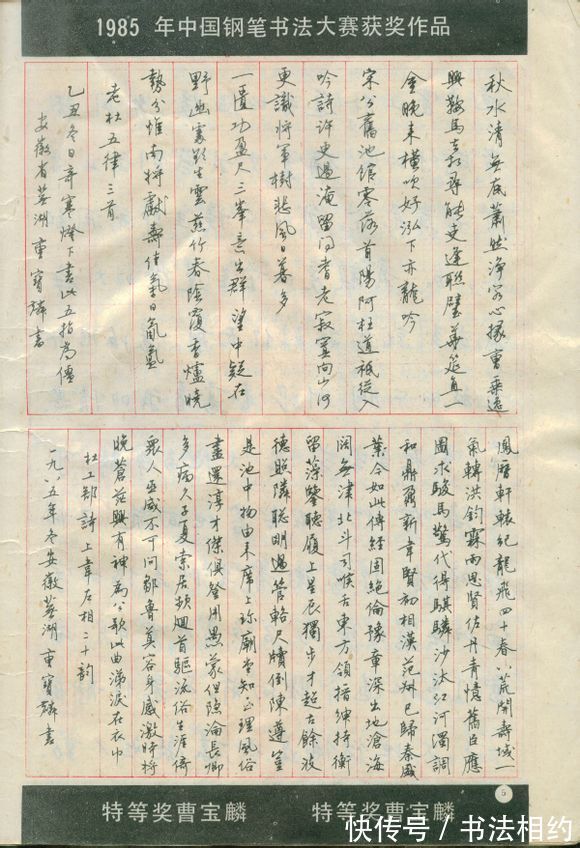 1985 年中国钢笔书法大赛获奖作品
秋水清無底蕭然浄客心掾曹乘逸
興鞍馬去相尋能吏逢聯璧華筵直一
金晚来橫吹好泓下亦龍吟
宋公舊池館零落首陽阿枉道祇從入
吟詩許更過淹留問耆老寂寞向山河
更識將軍樹悲風日暮多
一匱功盈尺三峯意出群望中疑在
野幽處欲生雲慈竹春陰覆香爐曉
勢分惟南將獻壽佳氣日氤氳
老杜五律三首
乙丑冬日辛寒燈下書此五指為僵
安徽省蕪湖曹寶麟書
鳳曆軒轅紀龍飛四十春八荒開壽域一
氣轉洪鈞霖雨思賢佐丹青憶舊臣應
圖求駿馬驚代得騏驎沙汰江河濁調
和鼎鼐新韋賢初相漢范叔已歸秦盛
業今如此傳經固絕倫豫章深出地滄海
闊無津北斗司喉舌東方領搢紳持衡
留藻鑒聽履上星辰獨步才超古餘波
德照隣聰明過管輅尺牘倒陳遵豈
是池中物由来席上珍廟堂知至理風俗
盡還淳才傑俱登用愚蒙但隱淪長卿
多病久子夏索居頻迴首驅流俗生涯似
眾人巫咸不可問鄒魯莫容身感激時將
晚蒼茫興有神為公歌此曲涕淚在衣巾
杜工部詩上韋左相二十韵
一九八五年冬安徽蕪湖曹寶麟書
5
特等奖曹宝麟 特等奖曹宝麟
快传号/书法相约